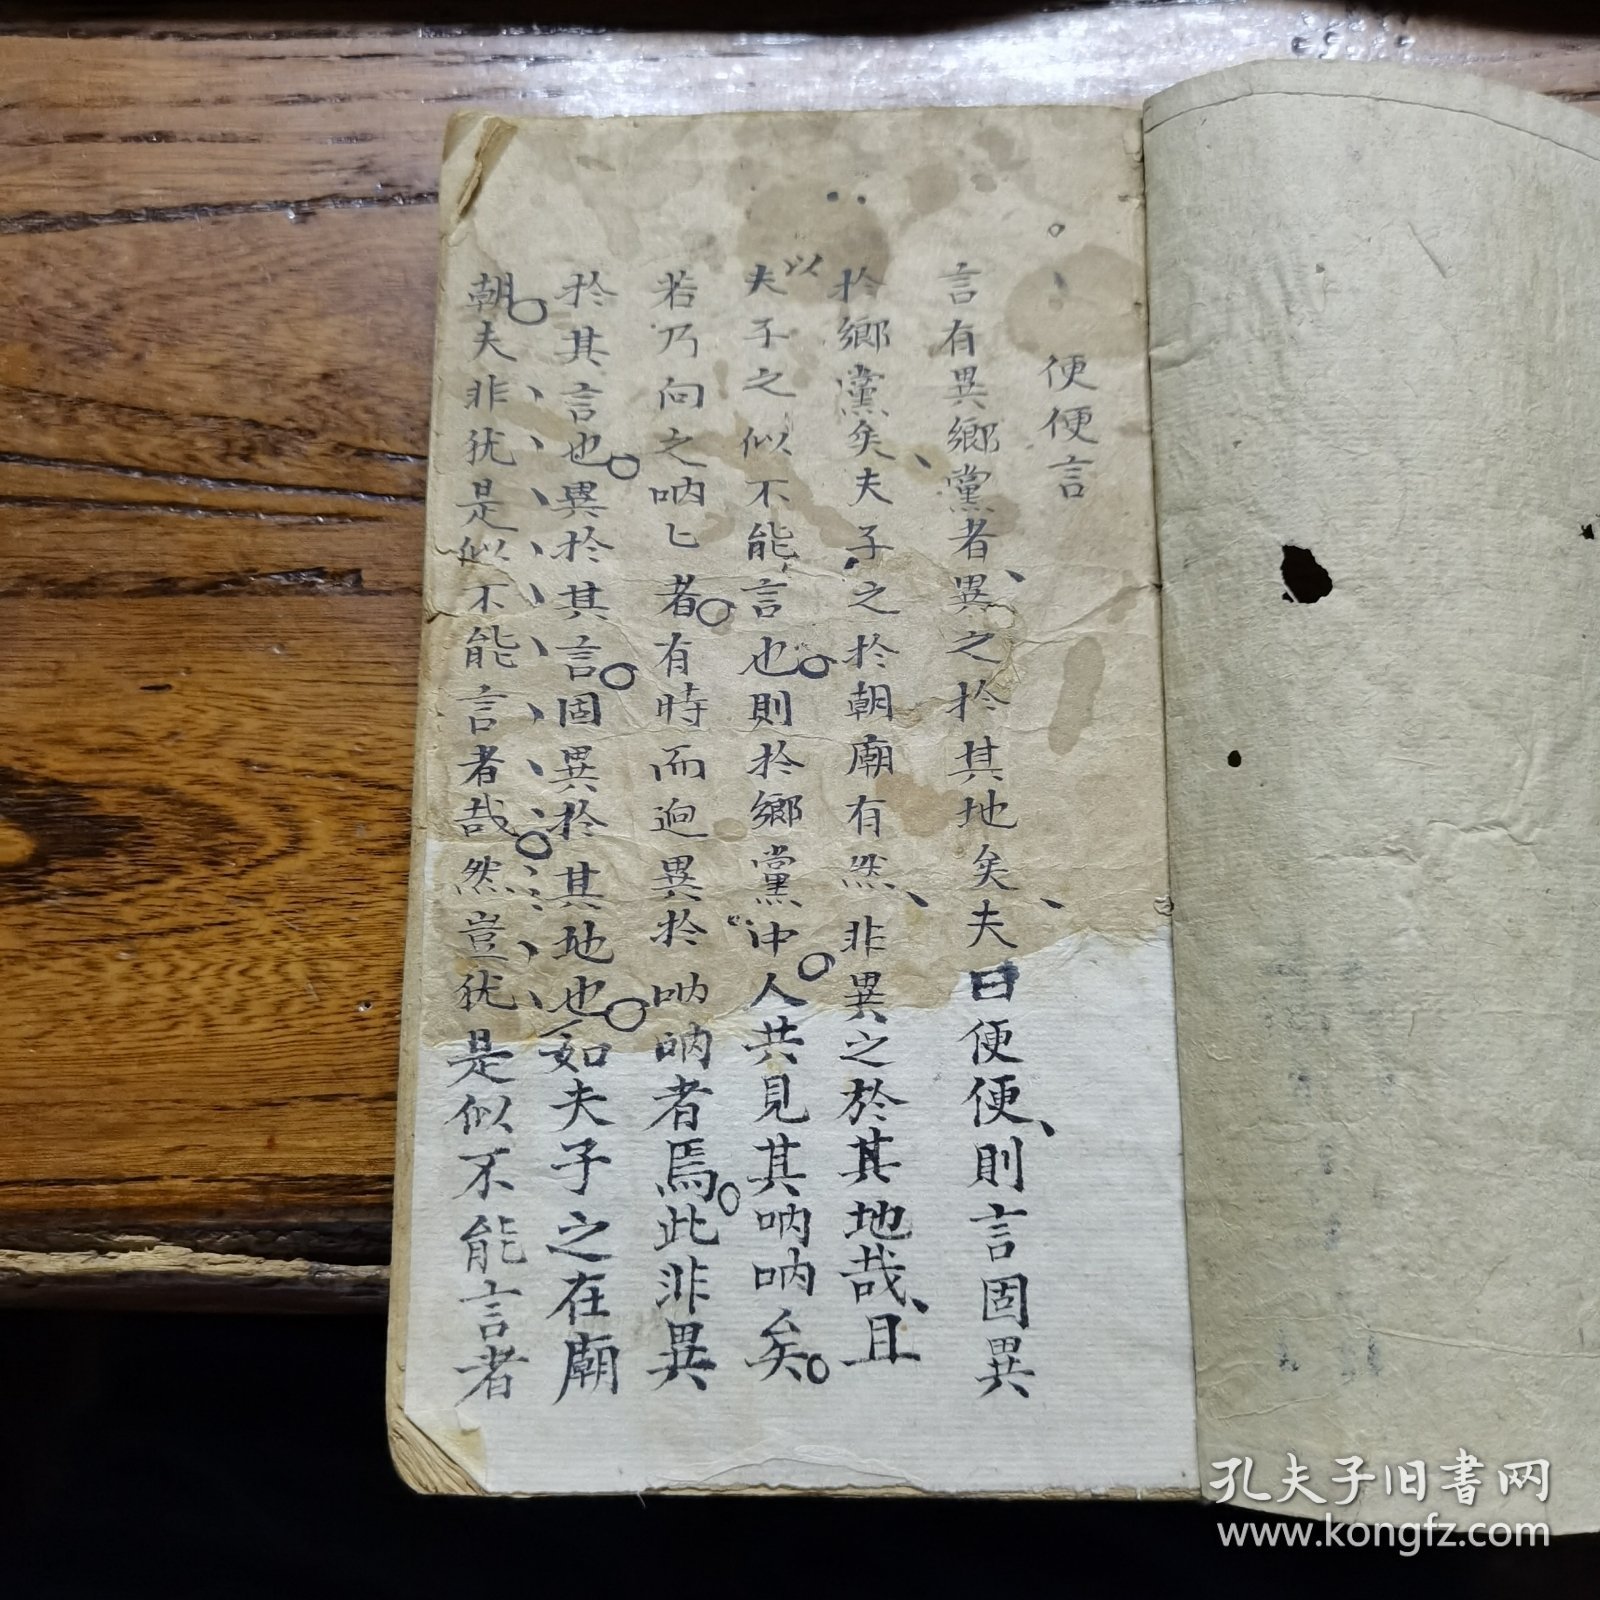 便便言
言有異鄉黨者異之於其地矣夫曰便便則言固異
於鄉黨矣夫子之於朝廟有然非異之於其地哉且
以
夫子之似不能言也則於鄉黨中人共見其吶吶矣
若乃向之吶匕者有時而迥異於吶吶者焉此非異
於其言也異於其言固異於其地也如夫子之在廟
朝夫非猶是似不能言者哉然豈猶是似不能言者
孔夫子旧书网
www.kongfz.com